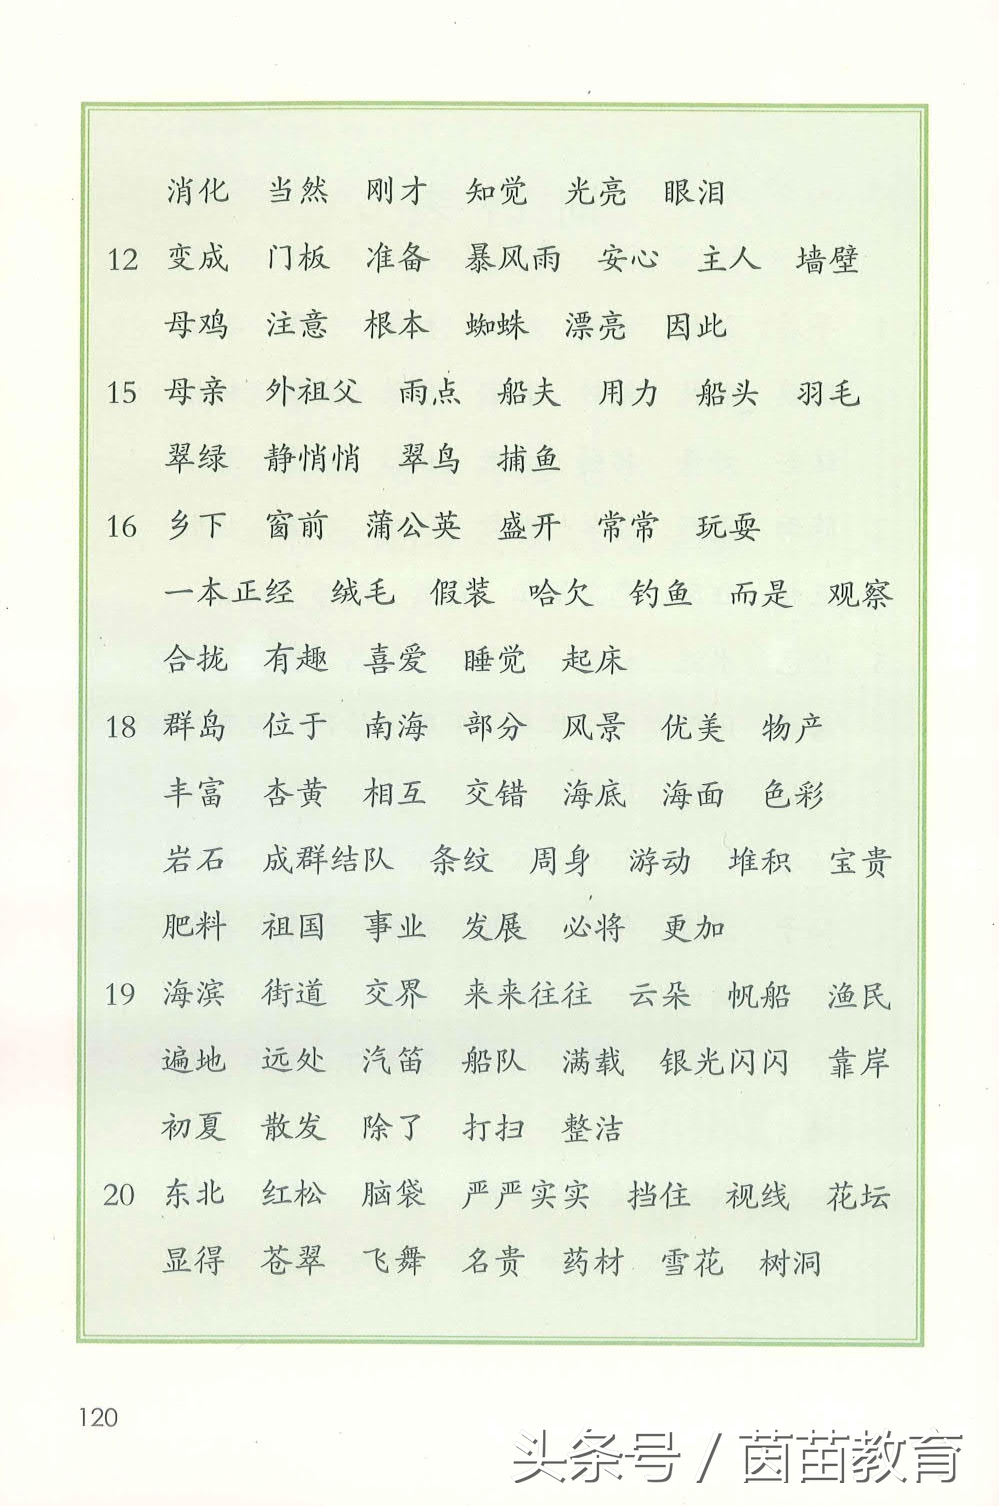 消化 当然 刚才 知觉 光亮 眼泪
12 变成 门板 准备 暴风雨 安心 主人 墙壁
母鸡 注意 根本 蜘蛛 漂亮 因此
15 母亲 外祖父 雨点 船夫 用力 船头 羽毛
翠绿 静悄悄 翠鸟 捕鱼
16 乡下 窗前 蒲公英 盛开 常常 玩耍
一本正经 绒毛 假装 哈欠 钓鱼 而是 观察
合拢 有趣 喜爱 睡觉 起床
18 群岛 位于 南海 部分 风景 优美 物产
丰富 杏黄 相互 交错 海底 海面 色彩
岩石 成群结队 条纹 周身 游动 堆积 宝贵
肥料 祖国 事业 发展 必将 更加
19 海滨 街道 交界 来来往往 云朵 帆船 渔民
遍地 远处 汽笛 船队 满载 银光闪闪 靠岸
初夏 散发 除了 打扫 整洁
20 东北 红松 脑袋 严严实实 挡住 视线 花坛
显得 苍翠 飞舞 名贵 药材 雪花 树洞
120
头条号 / 茵苗教育